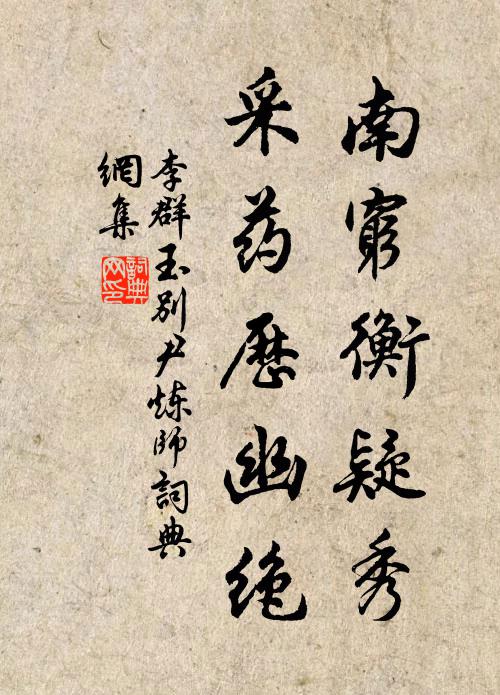 南窮衡疑秀
采药歷幽绝
李群玉别尹炼师詞典
網集
詞典网印